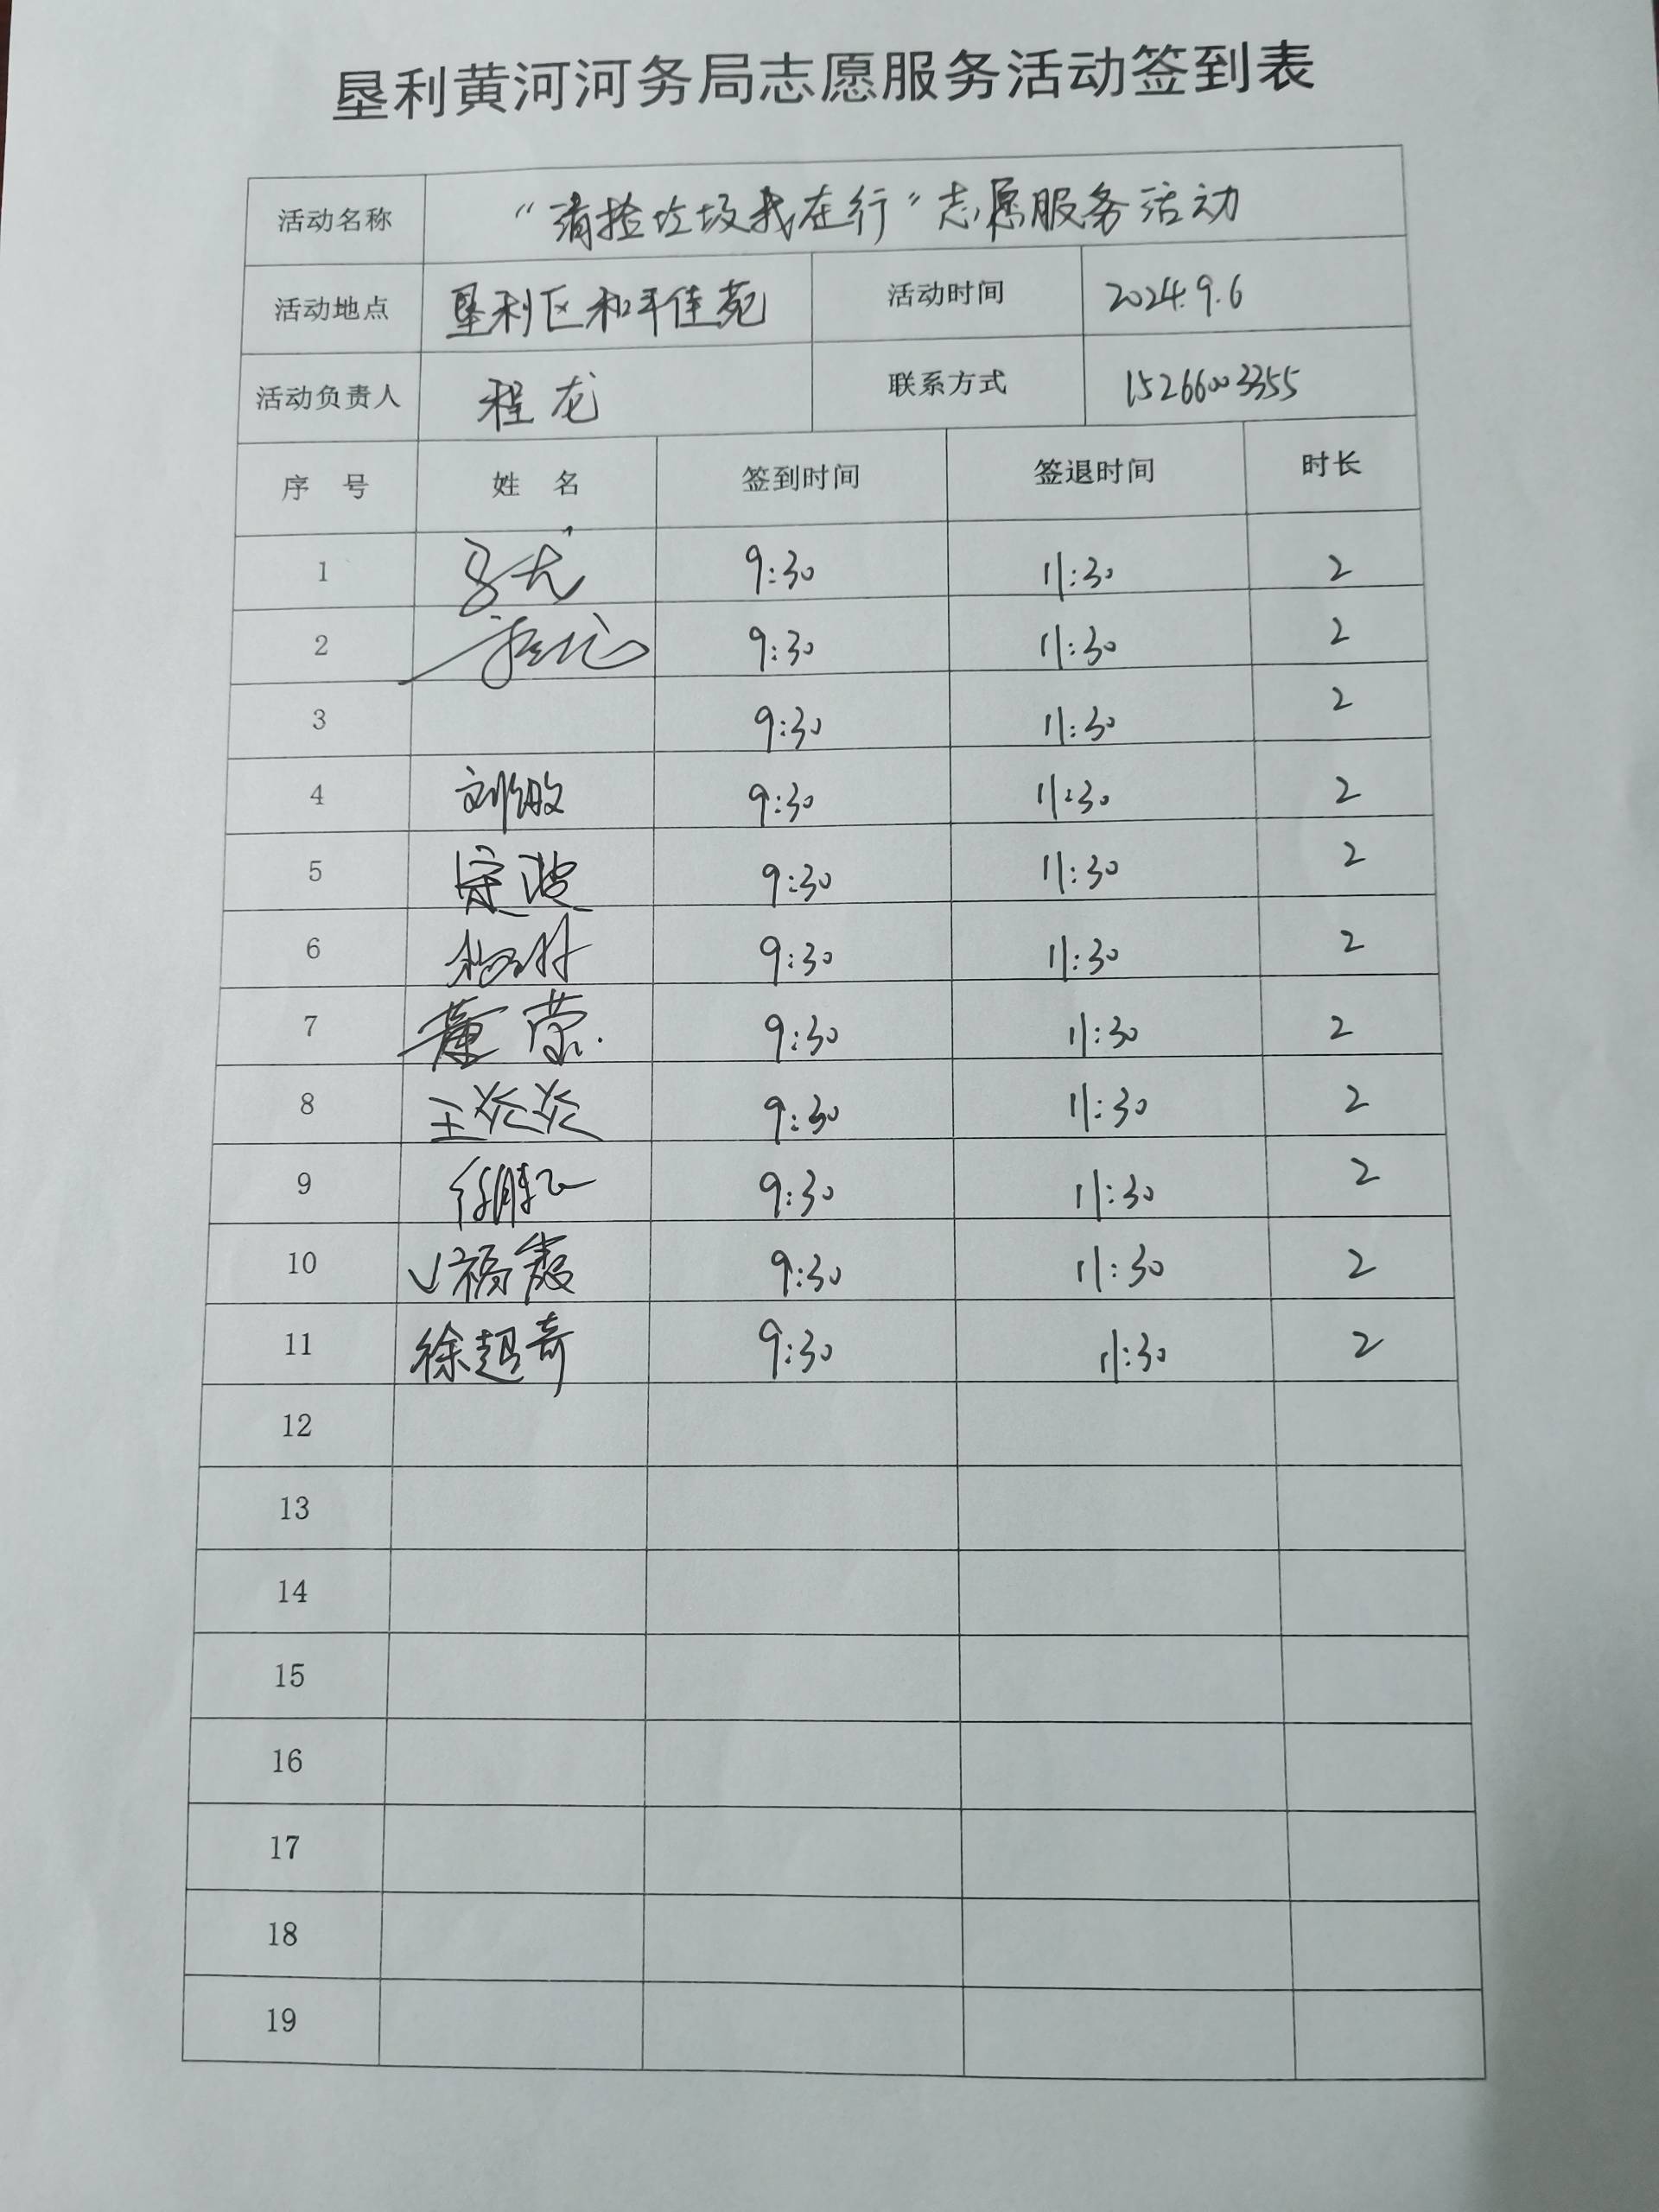 垦利黄河河务局志愿服务活动签到表
活动名称 “清捡垃圾我在行”志愿服务活动
活动地点 垦利区和平佳苑 活动时间 2024.9.6
活动负责人 程龙 联系方式 15266003355
序 号 姓 名 签到时间 签退时间 时长
1 9:30 11:30 2
2 9:30 11:30 2
3 9:30 11:30 2
4 刘敏 9:30 11:30 2
5 宋波 9:30 11:30 2
6 9:30 11:30 2
7 董荣 9:30 11:30 2
8 王炎炎 9:30 11:30 2
9 9:30 11:30 2
10 9:30 11:30 2
11 徐超奇 9:30 11:30 2
12
13
14
15
16
17
18
19